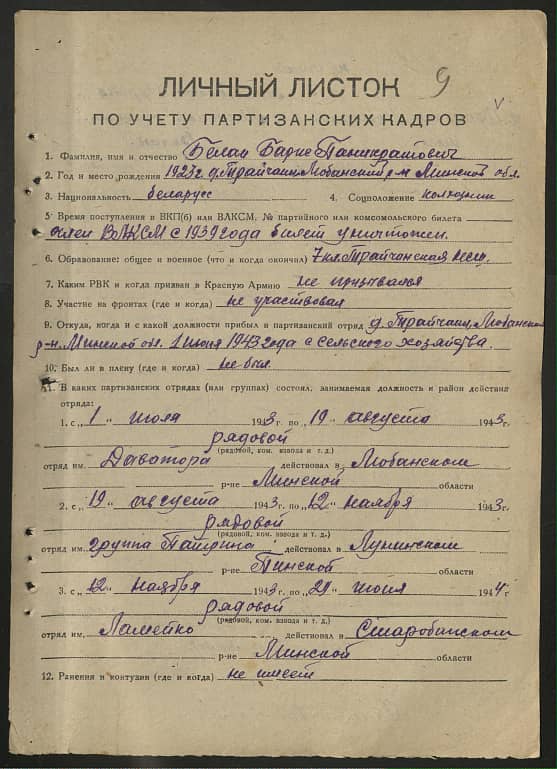 9
ЛИЧНЫЙ ЛИСТОК
ПО УЧЕТУ ПАРТИЗАНСКИХ КАДРОВ
1. Фамилия, имя и отчество Белан Барис Панкратович
2. Год и место рождения 1923г. д. Трайчаны Любанский р-н Минской обл.
3. Национальность беларусс 4. Соцположение колхозник
5. Время поступления в ВКП(б) или ВЛКСМ, № партийного или комсомольского билета
член ВЛКСМ с 1939 года билет уничтожен.
6. Образование: общее и военное (что и когда окончил) 7 кл. Трайчанская
7. Каким РВК и когда призван в Красную Армию не призывался
8. Участие на фронтах (где и когда) не участвовал
9. Откуда, когда и с какой должности прибыл в партизанский отряд д. Трайчаны, Любанского
р-н. Минской обл. 1943 года с сельского хозяйства.
10. Был ли в плену (где и когда) не был.
11. В каких партизанских отрядах (или группах) состоял, занимаемая должность и район действия
отряда:
1. с „1“ июля 1943 г. по „19“ августа 1943 г.
рядовой
(рядовой, ком. взвода и т. д.)
отряд им. Даватора действовал в Любанском
р-не Минской области
2. с „19“ августа 1943 г. по „12“ ноября 1943 г.
рядовой
(рядовой, ком. взвода и т. д.)
отряд им. группа действовал в Лунинском
р-не Пинской области
3. с „12“ ноября 1943 г. по „29“ июня 1944 г.
рядовой
(рядовой, ком. взвода и т. д.)
отряд им. Ламейко действовал в Старобинском
р-не Минской области
12. Ранения и контузии (где и когда) не имеет